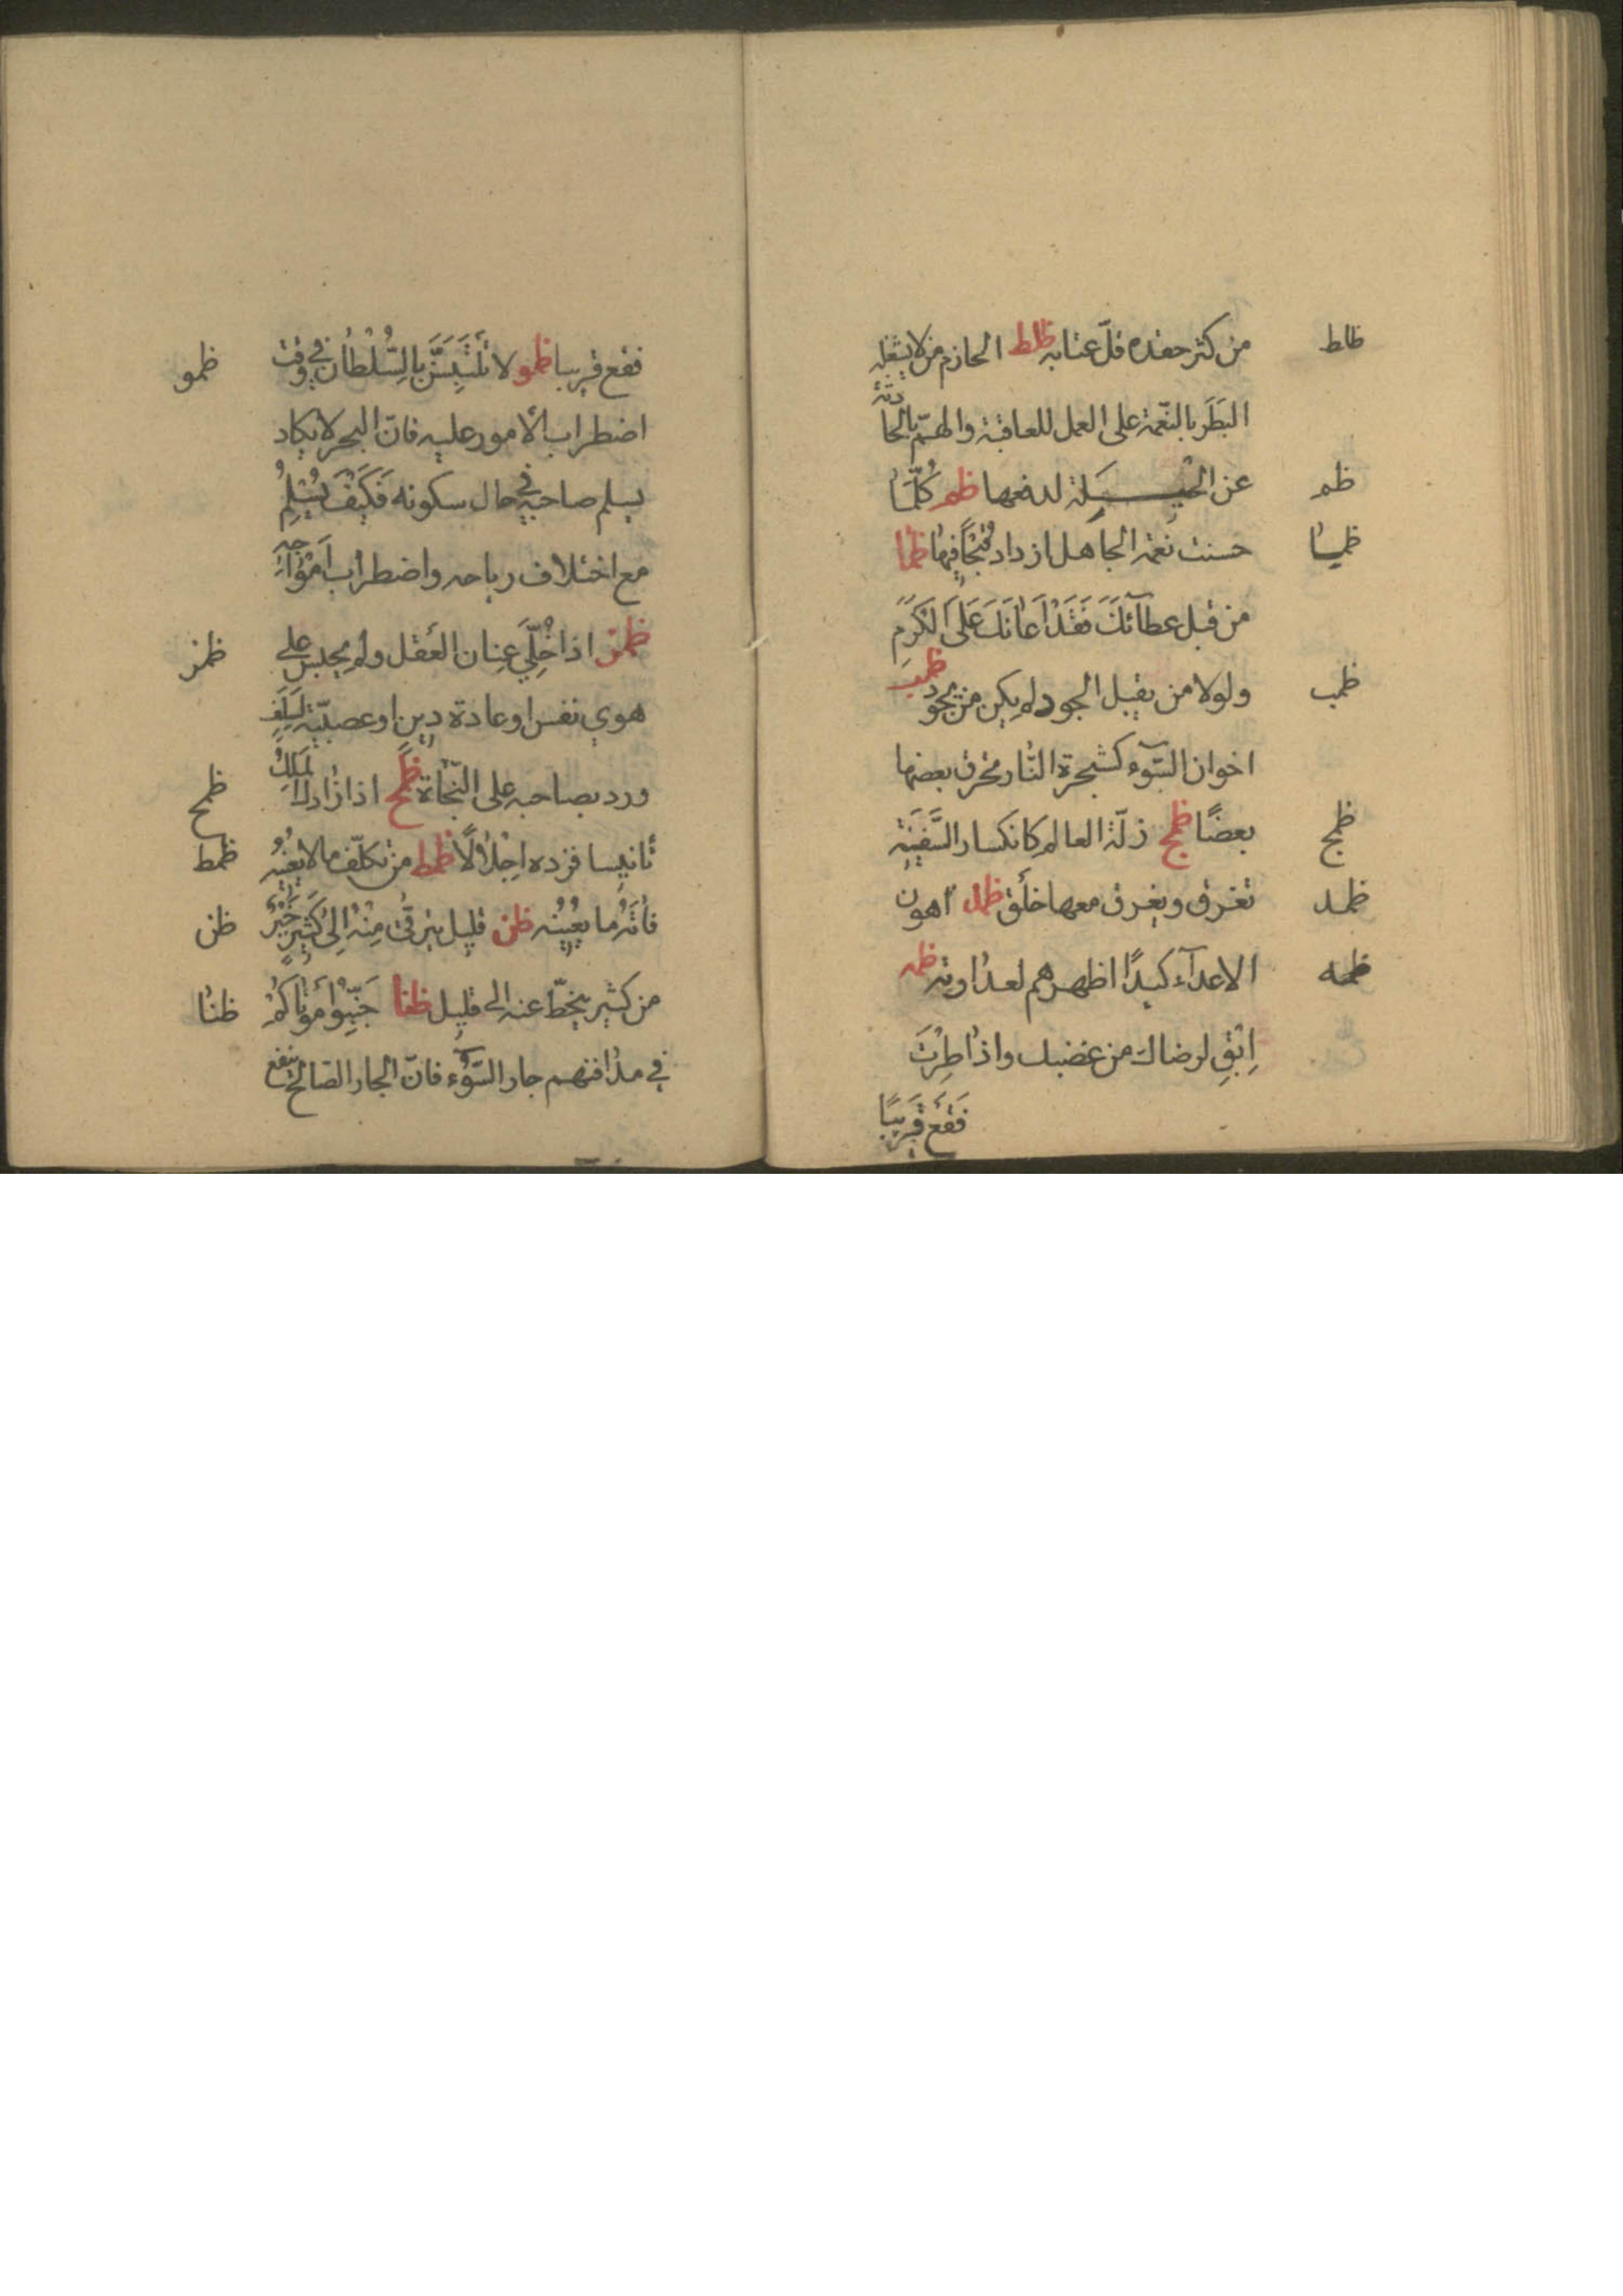 من كثر حقده قلّ عتابه ظلط الحازم من لا يشغله
ظلط
البَطَر بالنّعمة على العمل للعاقبة والهمّ بالحادثة
عن الحيــــلة لدفعها ظم كُلّمَا
ظم
حسنت نعمة الجاهل ازداد قُبْحًا فيها ظما
ظما
من قبل عطآئكَ فَقَدْ اَعَانَكَ عَلَى الكَرَم
ولولا من يقبل الجود لم يكن من يجود ظمب
ظمب
اخوان السّوء كشجرة النّار يحرق بعضها
بعضًا ظمج زلّة العالم كانكسار السَّفِينَة
ظمج
تغرق ويغرق معها خلق ظمد اهون
ظمد
الاعدآء كيدًا اظهرهم لعداوته ظمه
ظمه
اِبْقِ لرضاك من غضبك واذا طِرْتَ
فَقَعْ قَرِيبًا
فقع قريبا ظمو لا تَلْتَبِسَنَّ بِالسُّلْطَانِ في وقت
ظمو
اضطراب الأمور عليه فانّ البحر لا يكاد
يسلم صاحبه في حال سكونه فَكَيْفَ يُسْلِمُ
مع اختلاف رياحه واضطراب اَمْوَاجِه
ظمز اذا خُلِّيَ عِنان العَقل ولم يحبس على
ظمز
هوى نفس او عادة دين او عصبيّة لِسَلَفٍ
ورد بصاحبه على النّجاة ظمح اذا زادك المَلِكُ
ظمح
تانيسا فزده اِجْلالًا ظمط من تكلّف ما لا يَعْنِيه
ظمط
فَاتَهُ ما يَعْنِيه ظن قليل يترقّى مِنْهُ اِلَى كَثِيرٍ خَيْرٌ
ظن
من كثير ينحطّ عنه الى قليل ظنا جَنِّبُوا مَوْتَاكُمْ
ظنا
في مدافنهم جار السّوء فانّ الجار الصّالح ينفع